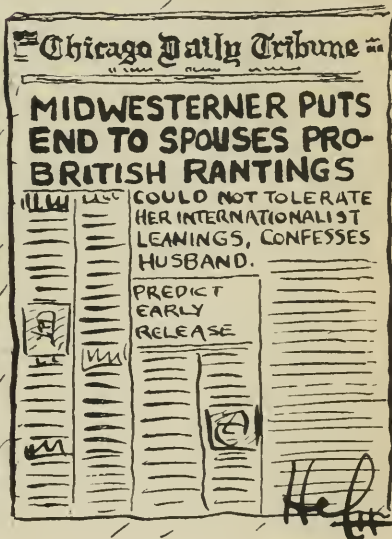 Chicago Daily Tribune
MIDWESTERNER PUTS
END TO SPOUSES PRO-
BRITISH RANTINGS
COULD NOT TOLERATE
HER INTERNATIONALIST
LEANINGS, CONFESSES
HUSBAND.
PREDICT
EARLY
RELEASE
Hef